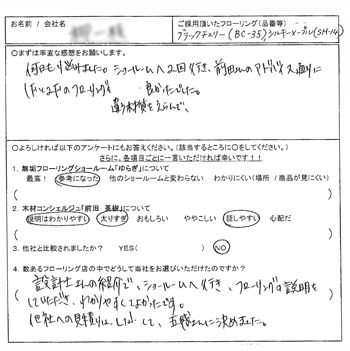 お名前 / 会社名
ご採用頂いたフローリング(品番等)
ブラックチェリー(BC-35)シルキーメープル(SM-14)
○まずは率直な感想をお願いします。
何日も悩みました。ショールームへ2回行き、前田さんのアドバイス通りに
1Fと2Fのフローリングを 良かったです。
違う材質をえらんで、
○よろしければ以下のアンケートにもお答えください。(該当するところに○をしてください。)
さらに、各項目ごとに一言いただければ幸いです！！
1. 無垢フローリングショールーム「ゆらぎ」について
最高！ 参考になった 他のショールームと変わらない わかりにくい(場所 / 商品が見にくい)
( )
2. 木材コンシェルジュ「前田 英樹」について
説明はわかりやすい 太りすぎ おもしろい ややこしい 話しやすい 心配だ
( )
3. 他社と比較されましたか？ YES( ) NO
4. 数あるフローリング店の中でどうして当社をお選びいただけたのですか？
設計士さんの紹介で、ショールームへ行き、フローリングの説明を
していただき、わかりやすくてよかったです。
他社への見積りは、しないで、五感さんに決めました。